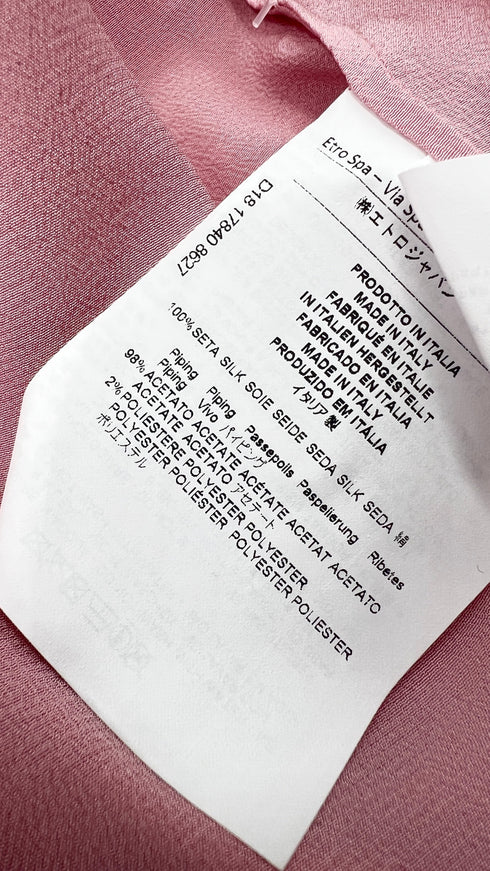 Etro Spa – Via Spa
㈱エトロジャパン
D18 17840 8627
PRODOTTO IN ITALIA
MADE IN ITALY
FABRIQUÉ EN ITALIE
IN ITALIEN HERGESTELLT
FABRICADO EN ITALIA
MADE IN ITALY
PRODUZIDO EM ITÁLIA
イタリア製
100% SETA SILK SOIE SEIDE SEDA SILK SEDA 絹
Piping Piping Passepoils Paspelierung Ribetes
Piping Vivo パイピング
98% ACETATO ACETATE ACÉTATE ACETAT ACETATO
ACETATE ACETATO アセテート
2% POLIESTERE POLYESTER POLYESTER
POLYESTER POLIÉSTER POLYESTER POLIESTER
ポリエステル